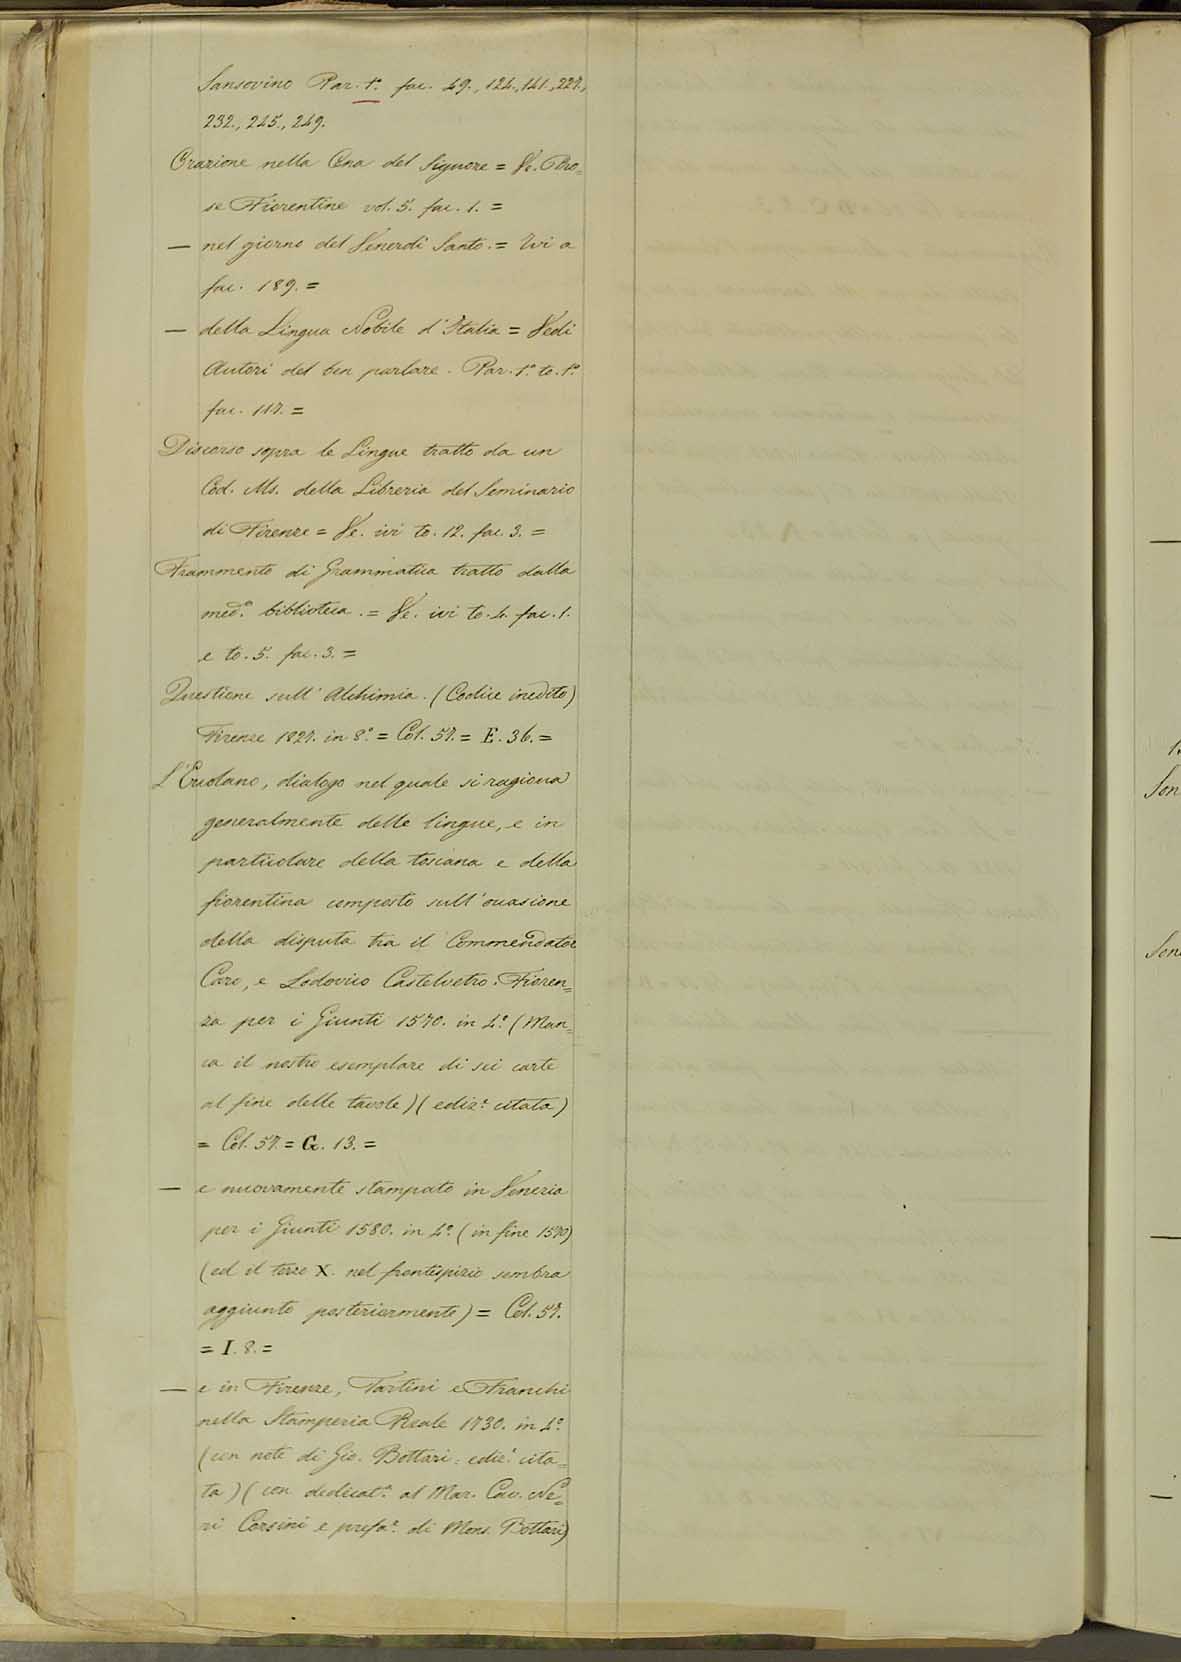 Sansovino Par. 1ª fac. 49., 124., 141., 227.,
232., 245., 249.
Orazione nella Cena del Signore = Ve. Pro=
se Fiorentine vol. 5. fac. 1. =
— nel giorno del Venerdì Santo. = Ivi a
fac. 189. =
— della Lingua Nobile d'Italia = Vedi
Autori del ben parlare. Par. 1ª to. 1º
fac. 117. =
Discorso sopra le Lingue tratto da un
Cod. Ms. della Libreria del Seminario
di Firenze = Ve. ivi to. 12. fac. 3. =
Frammento di Grammatica tratto dalla
medª biblioteca. = Ve. ivi to. 4. fac. 1.
e to. 5. fac. 3. =
Questione sull' Alchimia. (Codice inedito)
Firenze 1827. in 8º = Col. 57. = E. 36. =
L'Ercolano, dialogo nel quale si ragiona
generalmente delle lingue, e in
particolare della toscana e della
fiorentina composto sull'occasione
della disputa tra il Commendator
Caro, e Lodovico Castelvetro. Fioren=
za per i Giunti 1570. in 4º (Man=
ca il nostro esemplare di sei carte
al fine delle tavole) (edizª citata)
= Col. 57. = G. 13. =
— e nuovamente stampato in Venezia
per i Giunti 1580. in 4º (in fine 1570)
(ed il terzo X. nel frontispizio sembra
aggiunto posteriormente) = Col. 57.
= I. 8. =
— e in Firenze, Tartini e Franchi
nella Stamperia Reale 1730. in 4º
(con note di Gio. Bottari: edizª cita=
ta) (con dedicatª al Mar. Cav. Ne=
ri Corsini e prefaª di Mons. Bottari)